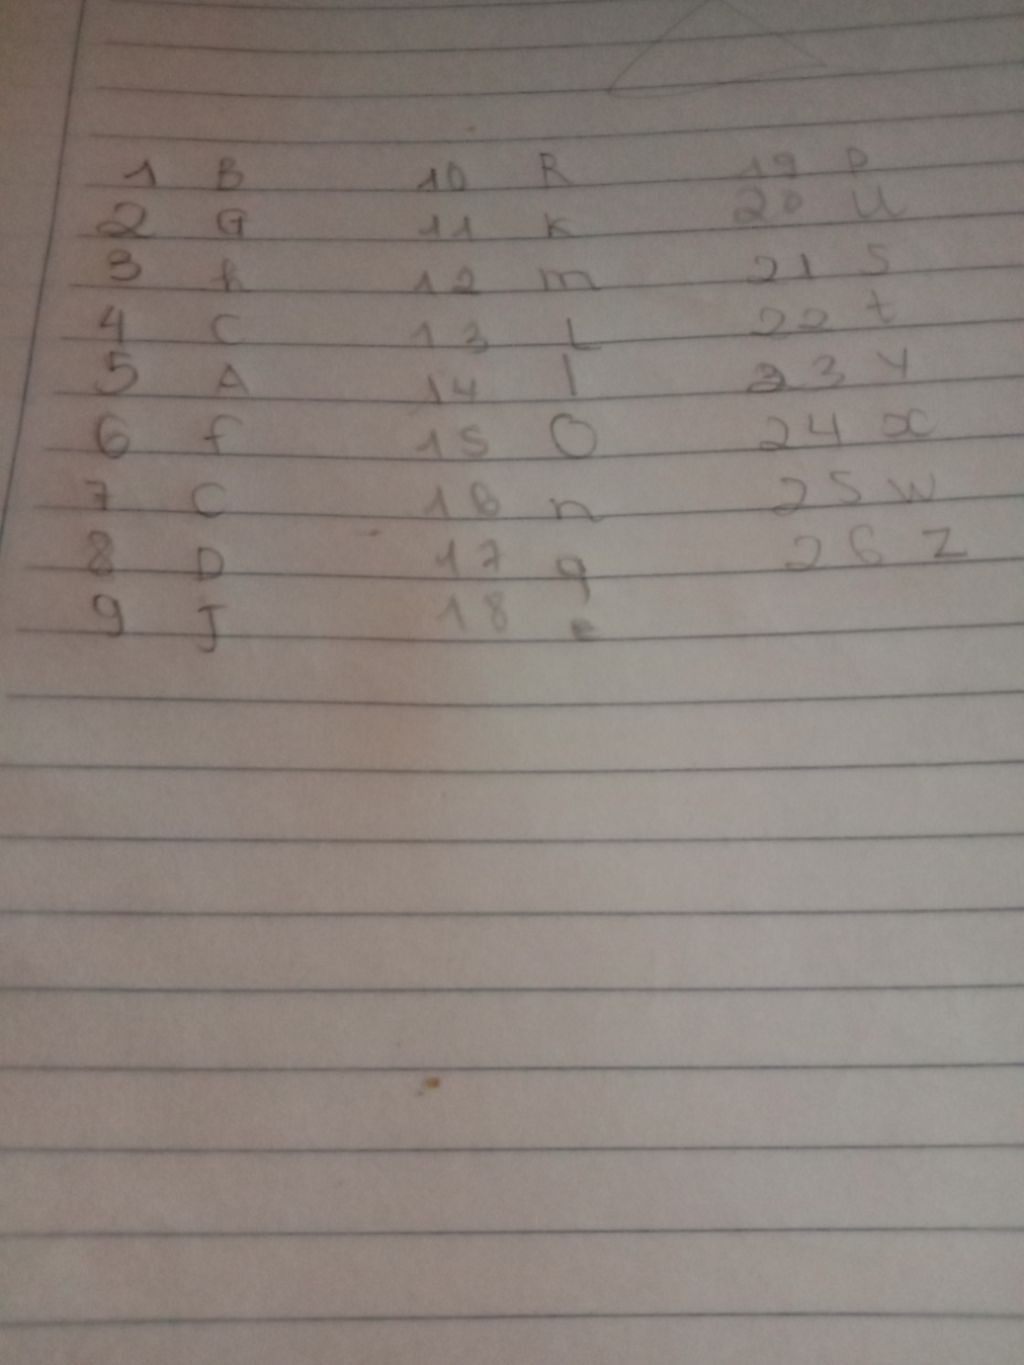 1 B 10 R 19 P
2 G 11 K 20 U
3 h 12 m 21 S
4 C 13 L 22 t
5 A 14 I 23 Y
6 f 15 O 24 x
7 C 16 n 25 W
8 D 17 q 26 Z
9 J 18 e